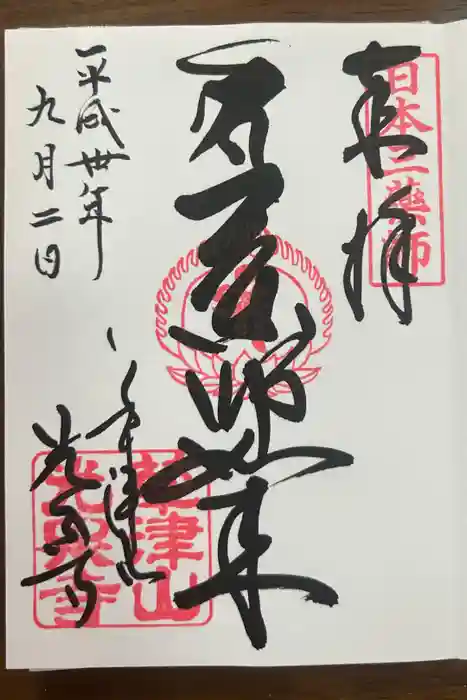 日本三薬師
奉拝
薬師如来
草津山
光泉寺
平成卅年
九月二日
草津山
光泉寺